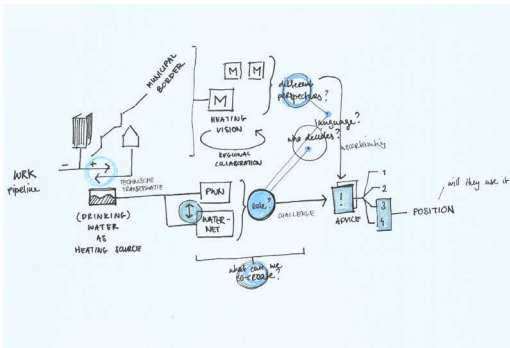 MUNICIPAL
BORDER
M M
M
HEATING
VISION
REGIONAL
COLLABORATION
different
perspectives?
language?
who decides?
uncertainty
WRK
pipeline
- +
TECHNISCHE
(DRINKING)
WATER
AS
HEATING SOURCE
PWN
WATER-
NET
Role?
CHALLENGE
!
ADVICE
1
2
3
4
POSITION
will they use it
what can we
co-create?